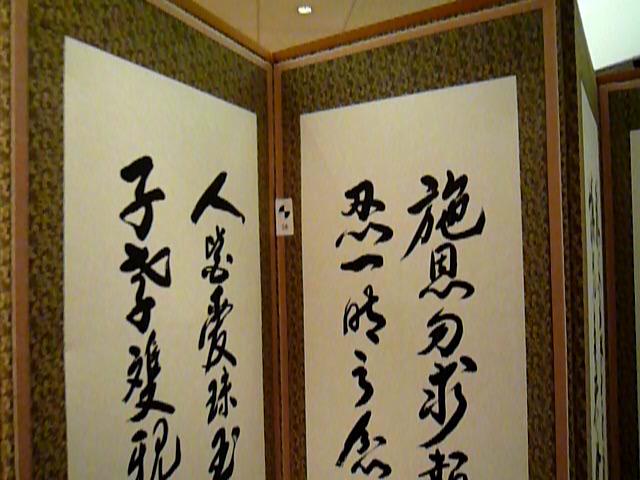 施恩勿求
忍一時之
人皆愛珠玉
子孝雙親